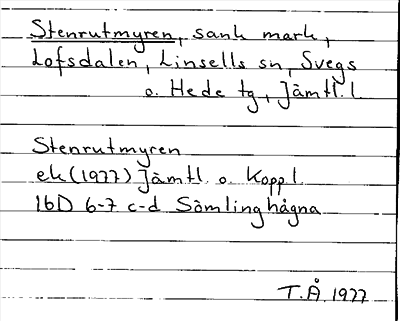 Stenrutmyren, sank mark,
Lofsdalen, Linsells sn, Svegs
o. Hede tg, Jämtl. l
Stenrutmyren
ek (1977) Jämtl. o. Kopp l.
16D 6-7 c-d Sömlinghågna
T.Å. 1977